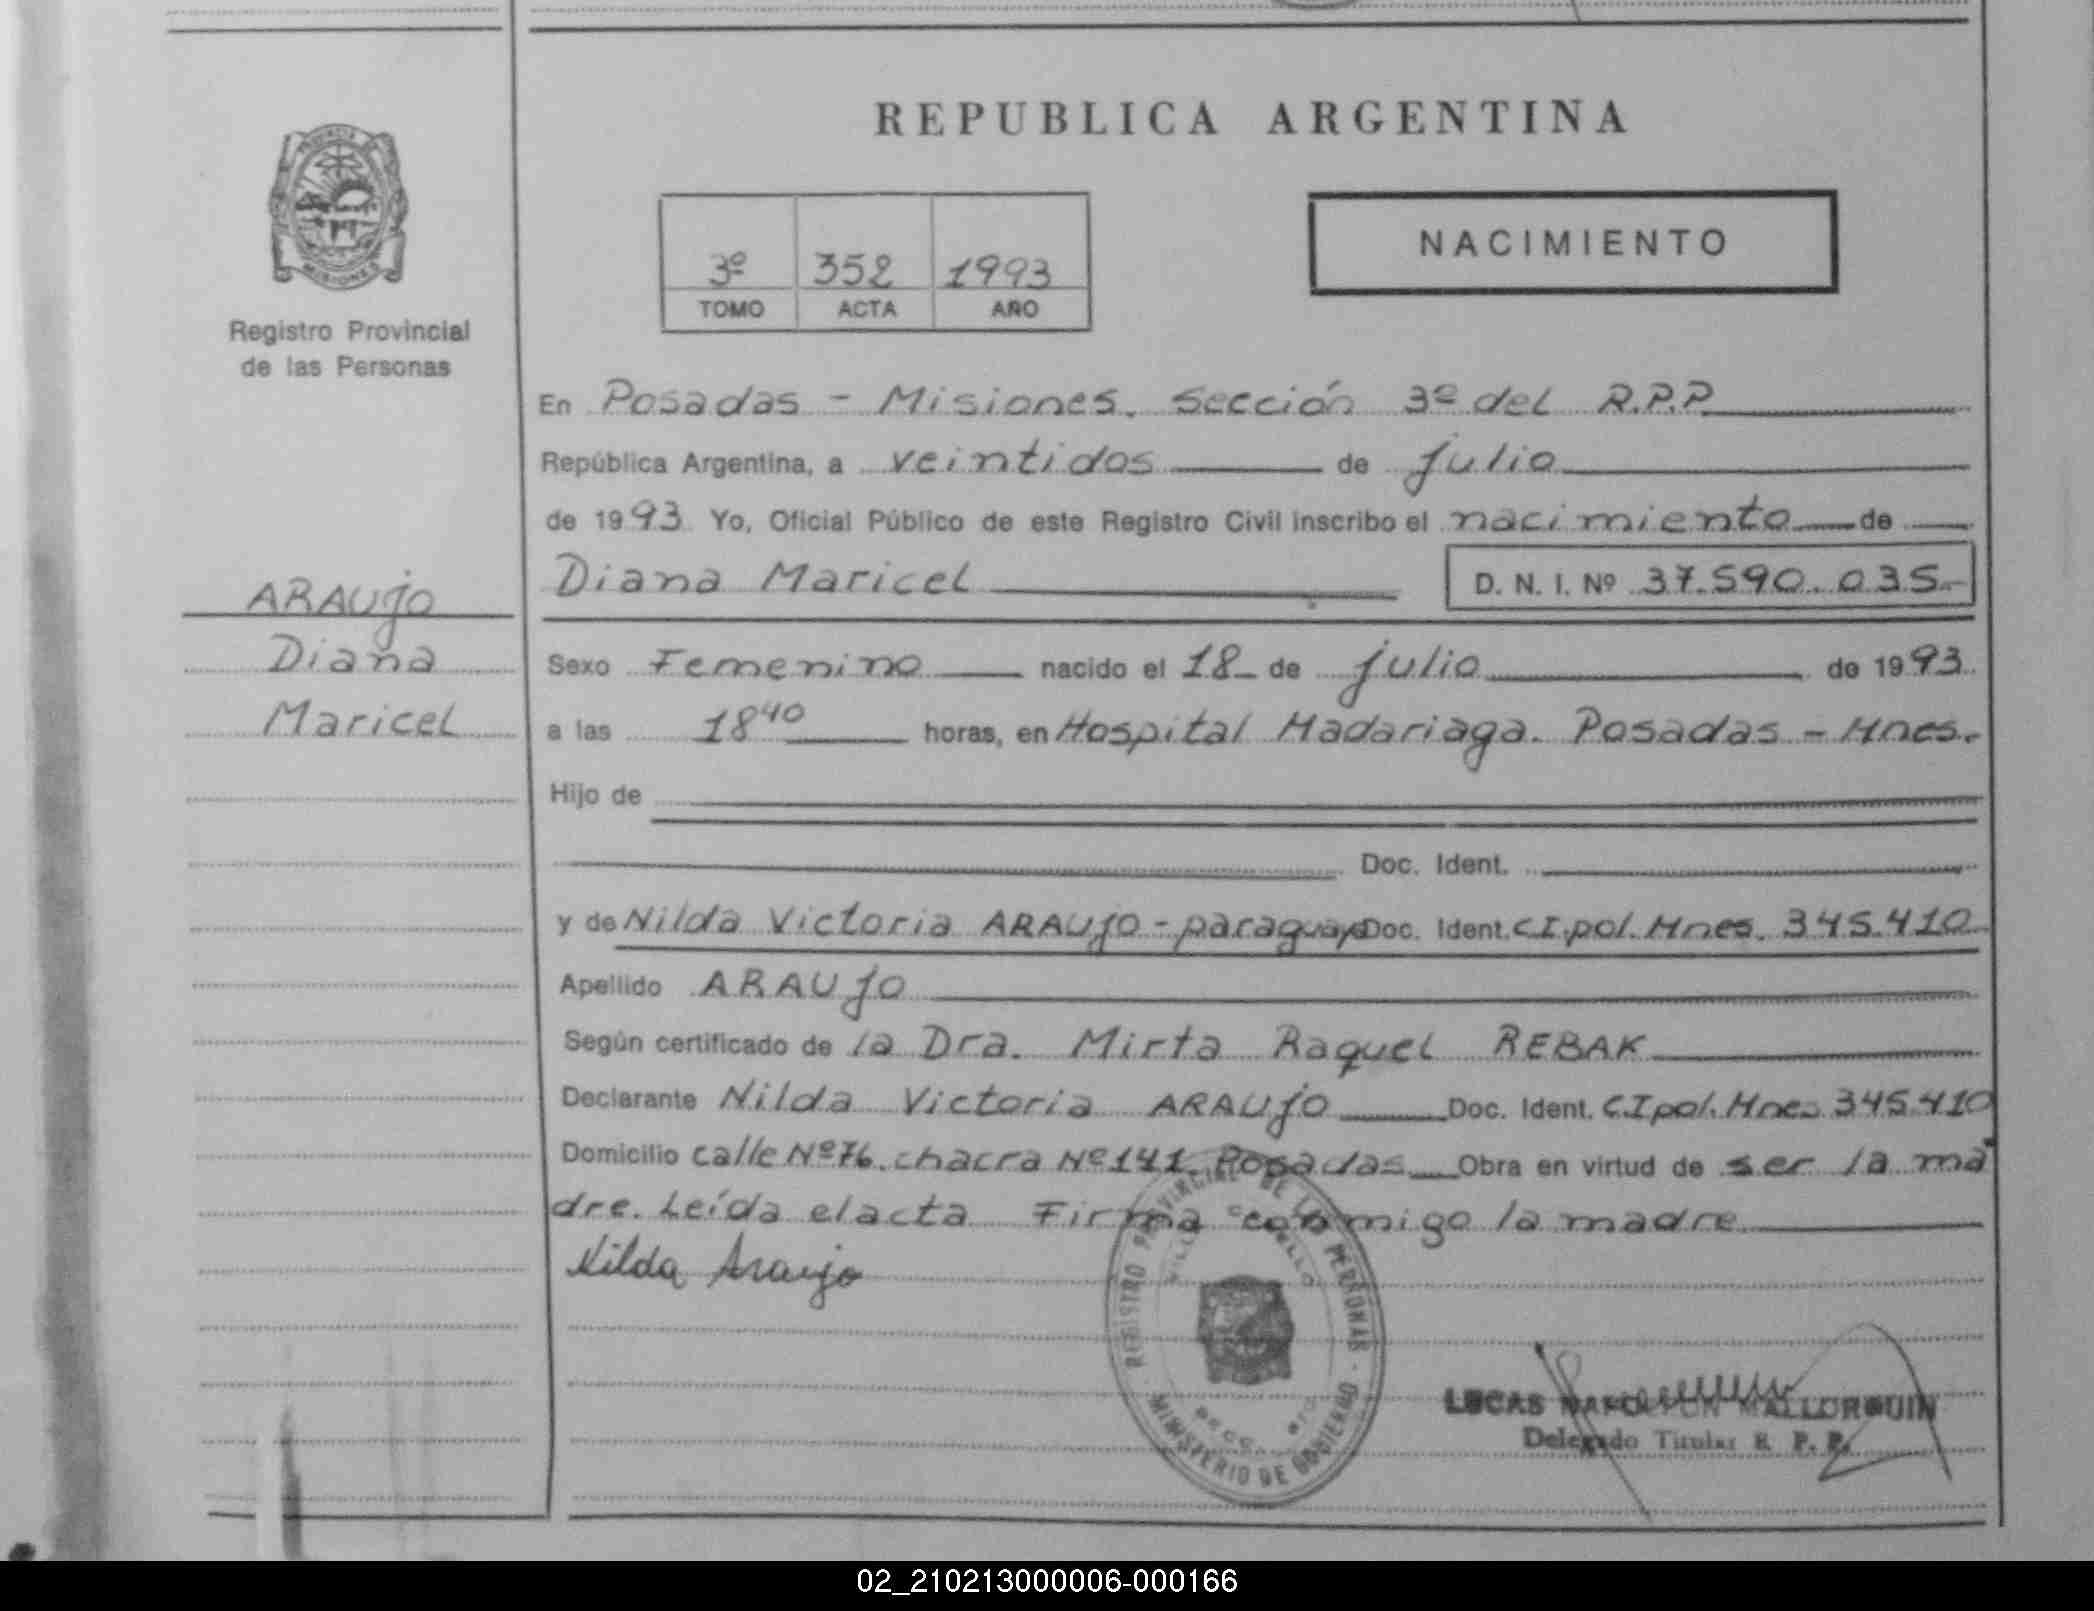 REPUBLICA ARGENTINA
PROVINCIA DE MISIONES
Registro Provincial
de las Personas
3º 352 1993
TOMO ACTA AÑO
NACIMIENTO
ARAUjo
Diana
Maricel
En Posadas - Misiones. Sección 3º del R.P.P.
República Argentina, a veintidos de julio
de 1993 Yo, Oficial Público de este Registro Civil inscribo el nacimiento de
Diana Maricel D. N. I. Nº 37.590.035.-
Sexo Femenino nacido el 18 de julio de 1993
a las 18⁴⁰ horas, en Hospital Madariaga. Posadas - Mnes.
Hijo de
Doc. Ident.
y de Nilda Victoria ARAUjo - paraguaya Doc. Ident. C.I.pol. Mnes. 345.410
Apellido ARAUjo
Según certificado de la Dra. Mirta Raquel REBAK
Declarante Nilda Victoria ARAUjo Doc. Ident. C.I pol. Mnes 345.410
Domicilio calle Nº 76. chacra Nº 141. Posadas Obra en virtud de ser la ma
dre. Leída el acta Firma conmigo la madre
Nilda Araujo
REGISTRO PROVINCIAL DE LAS PERSONAS - MINISTERIO DE GOBIERNO
LUCAS NAPOLEON MALLORQUIN
Delegado Titular R. P. P.
02_210213000006-000166